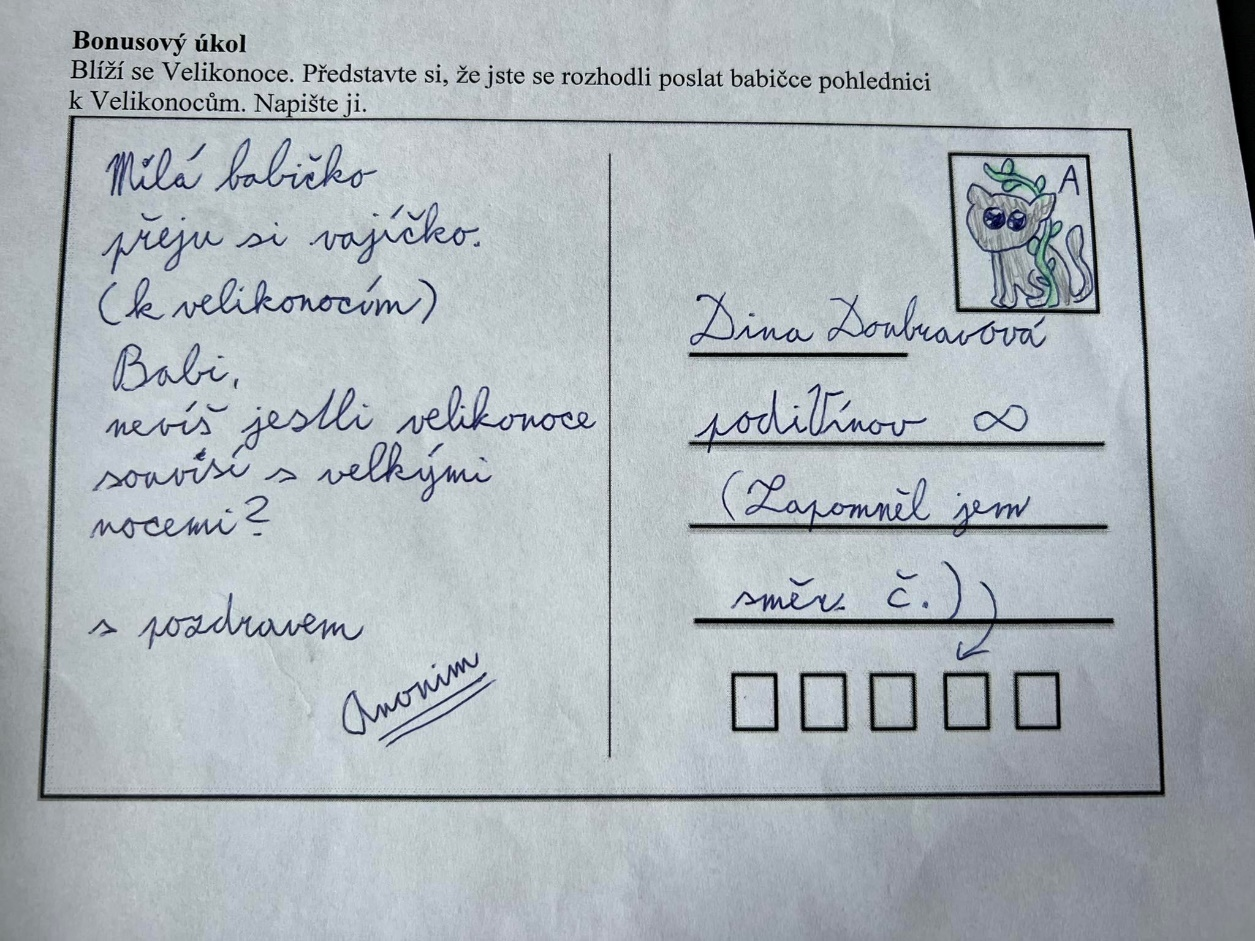 Bonusový úkol
Blíží se Velikonoce. Představte si, že jste se rozhodli poslat babičce pohlednici
k Velikonocům. Napište ji.
Milá babičko
přeju si vajíčko.
(k velikonocím)
Babi,
nevíš jestli velikonoce
souvisí s velkými
nocemi?
s pozdravem
Anonim
A
Dina Doubravová
podiťínov ∞
(Zapomněl jem
směr. č.)